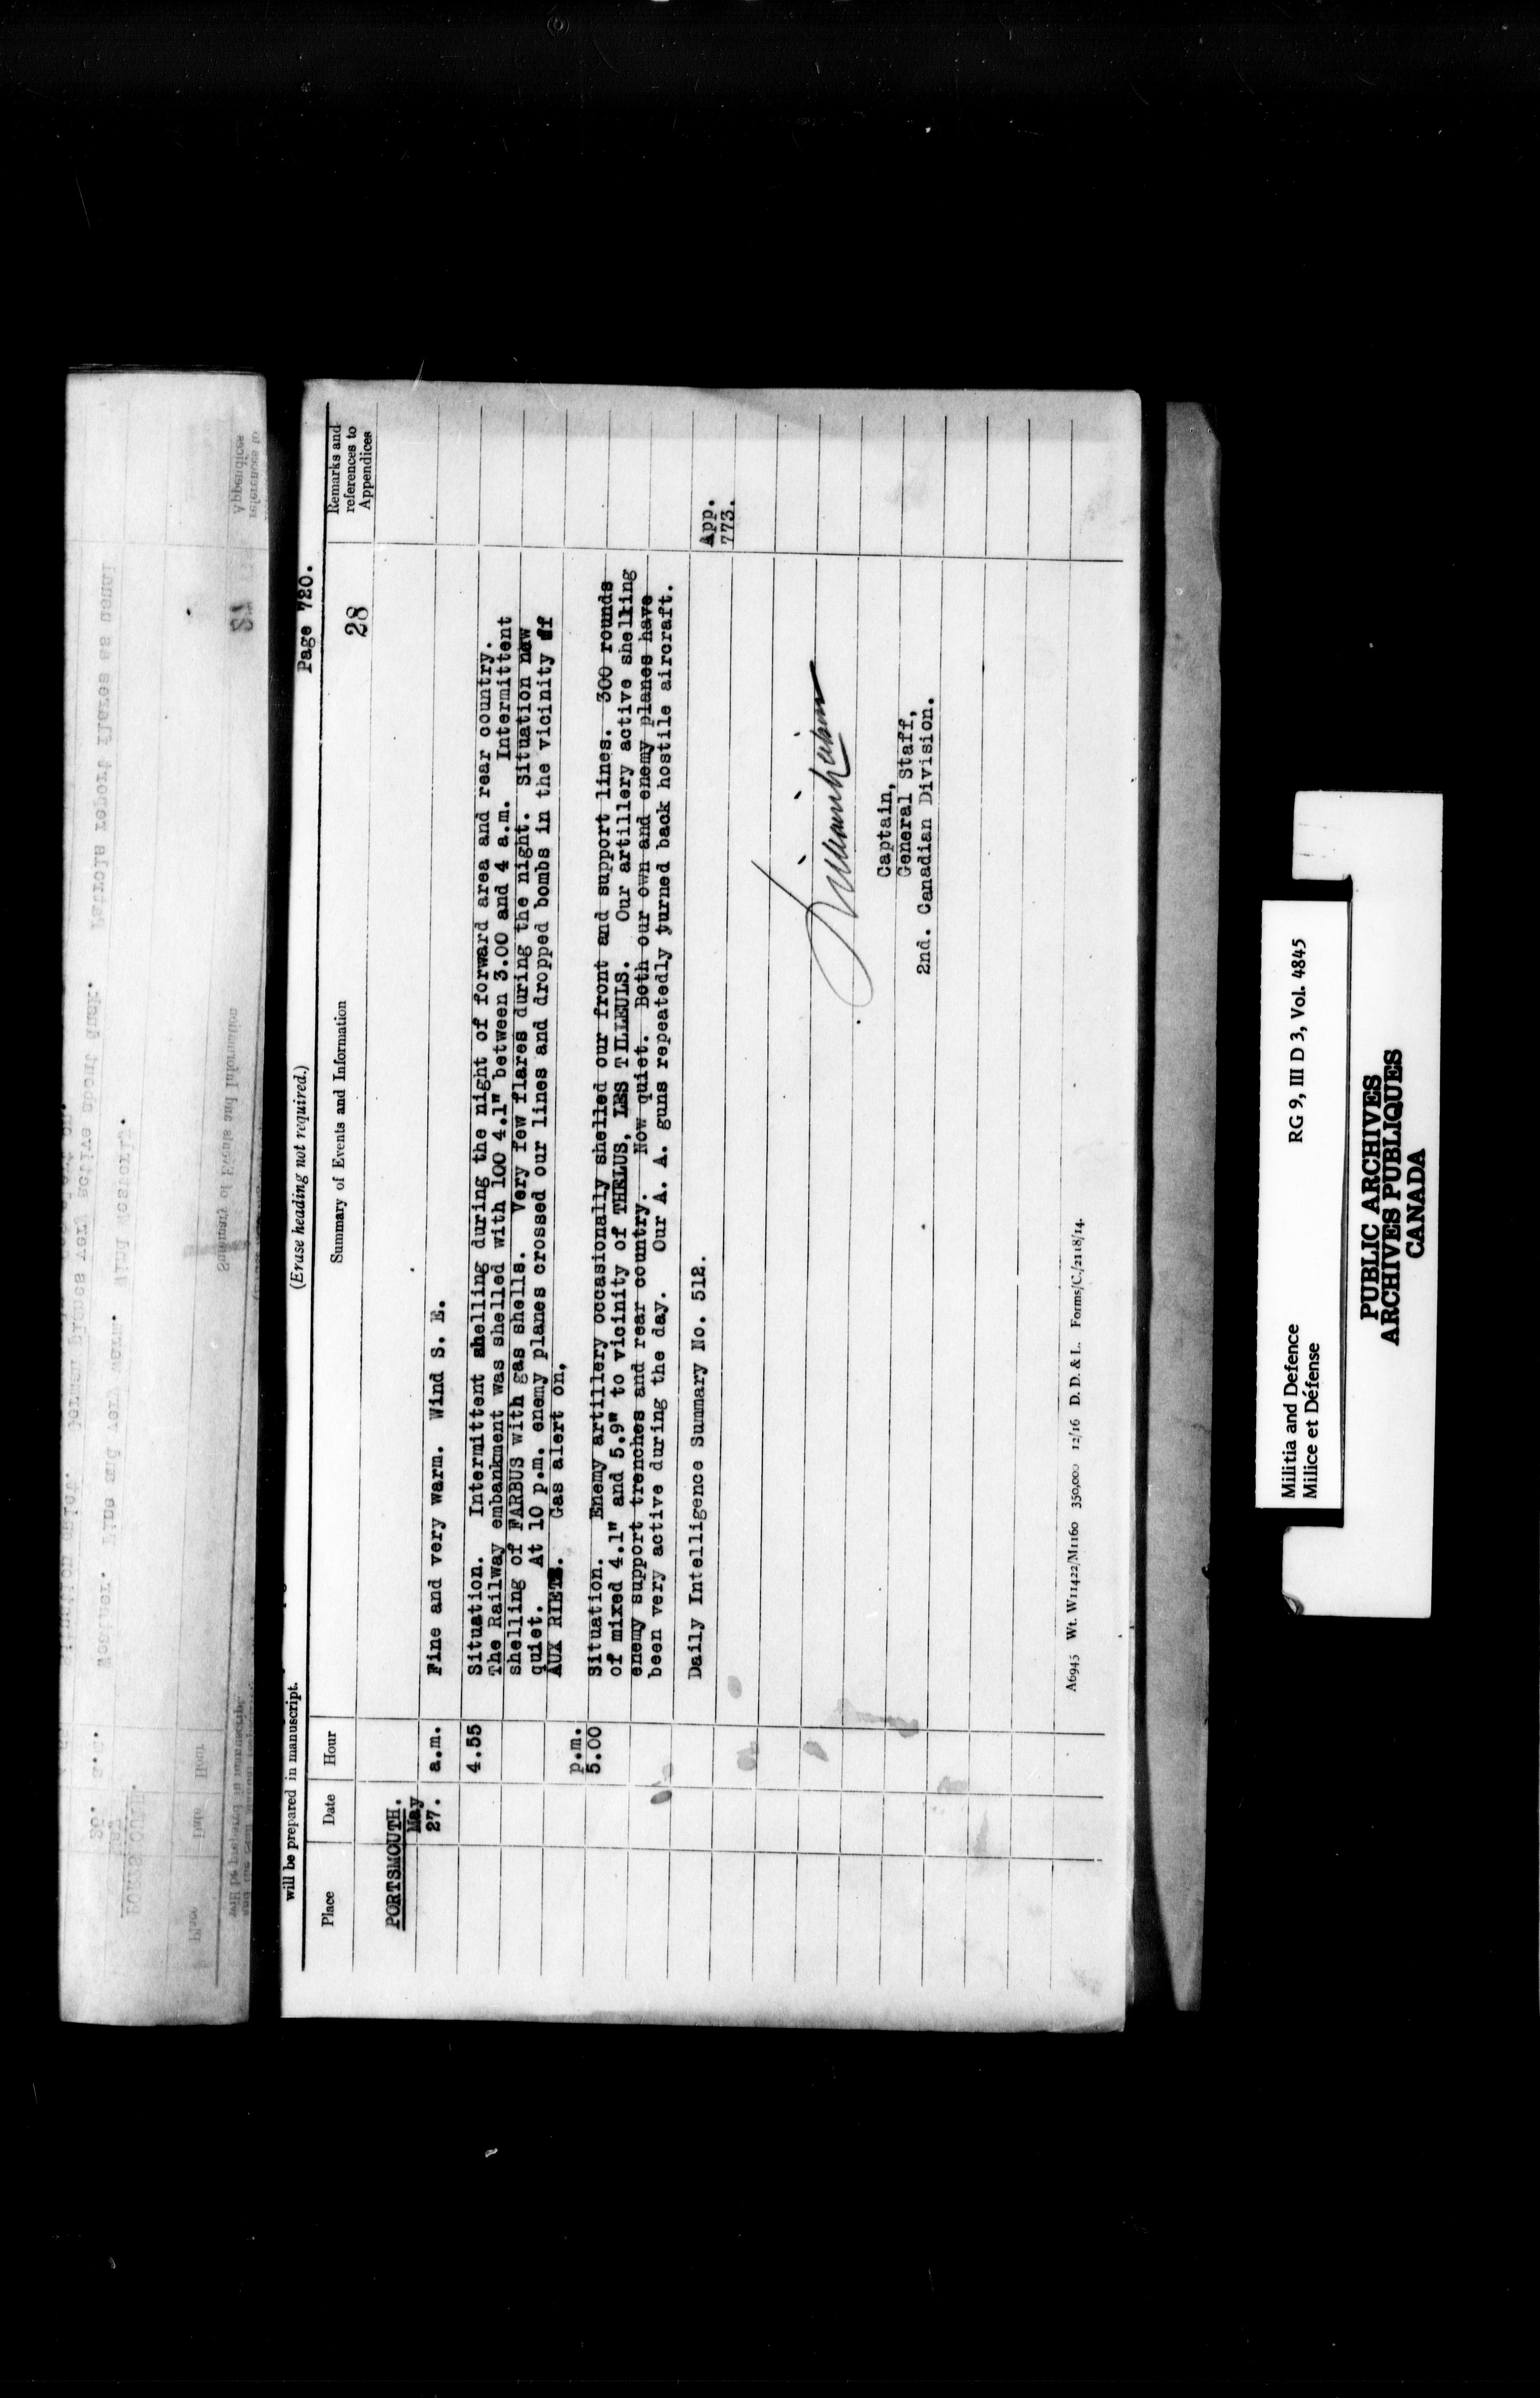 Page 720.
will be prepared in manuscript.
(Erase heading not required.)
Place
Date
Hour
Summary of Events and Information
Remarks and
references to
Appendices
28
PORTSMOUTH.
May
27.
a.m.
Fine and very warm. Wind S. E.
4.55
Situation. Intermittent shelling during the night of forward area and rear country.
The Railway embankment was shelled with 100 4.1" between 3.00 and 4 a.m. Intermittent
shelling of FARBUS with gas shells. Very few flares during the night. Situation now
quiet. At 10 p.m. enemy planes crossed our lines and dropped bombs in the vicinity of
AUX RIETZ. Gas alert on,
p.m.
5.00
Situation. Enemy artillery occasionally shelled our front and support lines. 300 rounds
of mixed 4.1" and 5.9" to vicinity of THELUS, LES TILLEULS. Our artillery active shelling
enemy support trenches and rear country. Now quiet. Both our own and enemy planes have
been very active during the day. Our A. A. guns repeatedly turned back hostile aircraft.
Daily Intelligence Summary No. 512.
App.
773.
Captain,
General Staff,
2nd. Canadian Division.
A6945 Wt. W11422/M1160 350,000 12/16 D. D. & L. Forms/C./2118/14.
Militia and Defence
Milice et Défense
RG 9, III D 3, Vol. 4845
PUBLIC ARCHIVES
ARCHIVES PUBLIQUES
CANADA